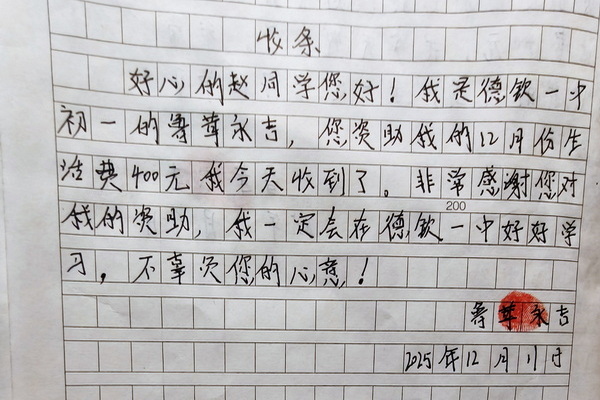 收条
好心的赵同学您好！我是德钦一中
初一的鲁茸永吉，您资助我的12月份生
活费400元我今天收到了。非常感谢您对
200
我的资助，我一定会在德钦一中好好学
习，不辜负您的心意！
鲁茸永吉
2025年12月11日